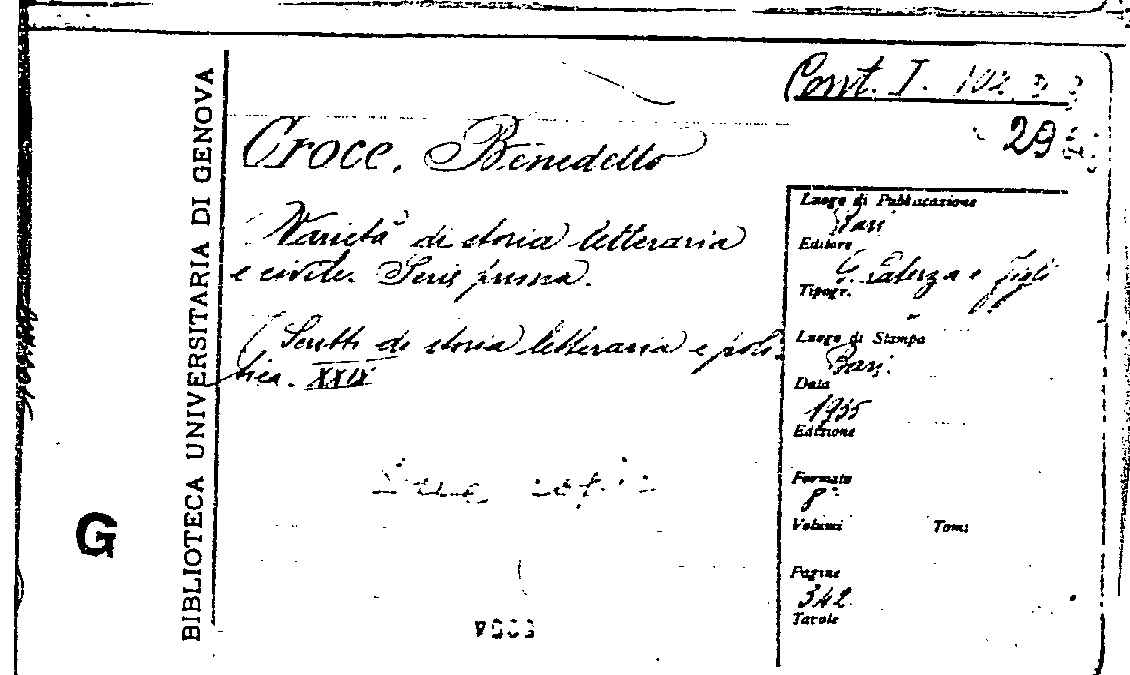 Cont. I. 102
29
Croce, Benedetto
Varietà di storia letteraria
e civile. Serie prima.
(Scritti di storia letteraria e poli-
tica. XXIX
BIBLIOTECA UNIVERSITARIA DI GENOVA
G
Luogo di Pubblicazione
Bari
Editore
G. Laterza e Figli
Tipogr.
Luogo di Stampa
Bari.
Data
1935
Edizione
Formato
8°
Volumi Tomi
Pagine
342
Tavole